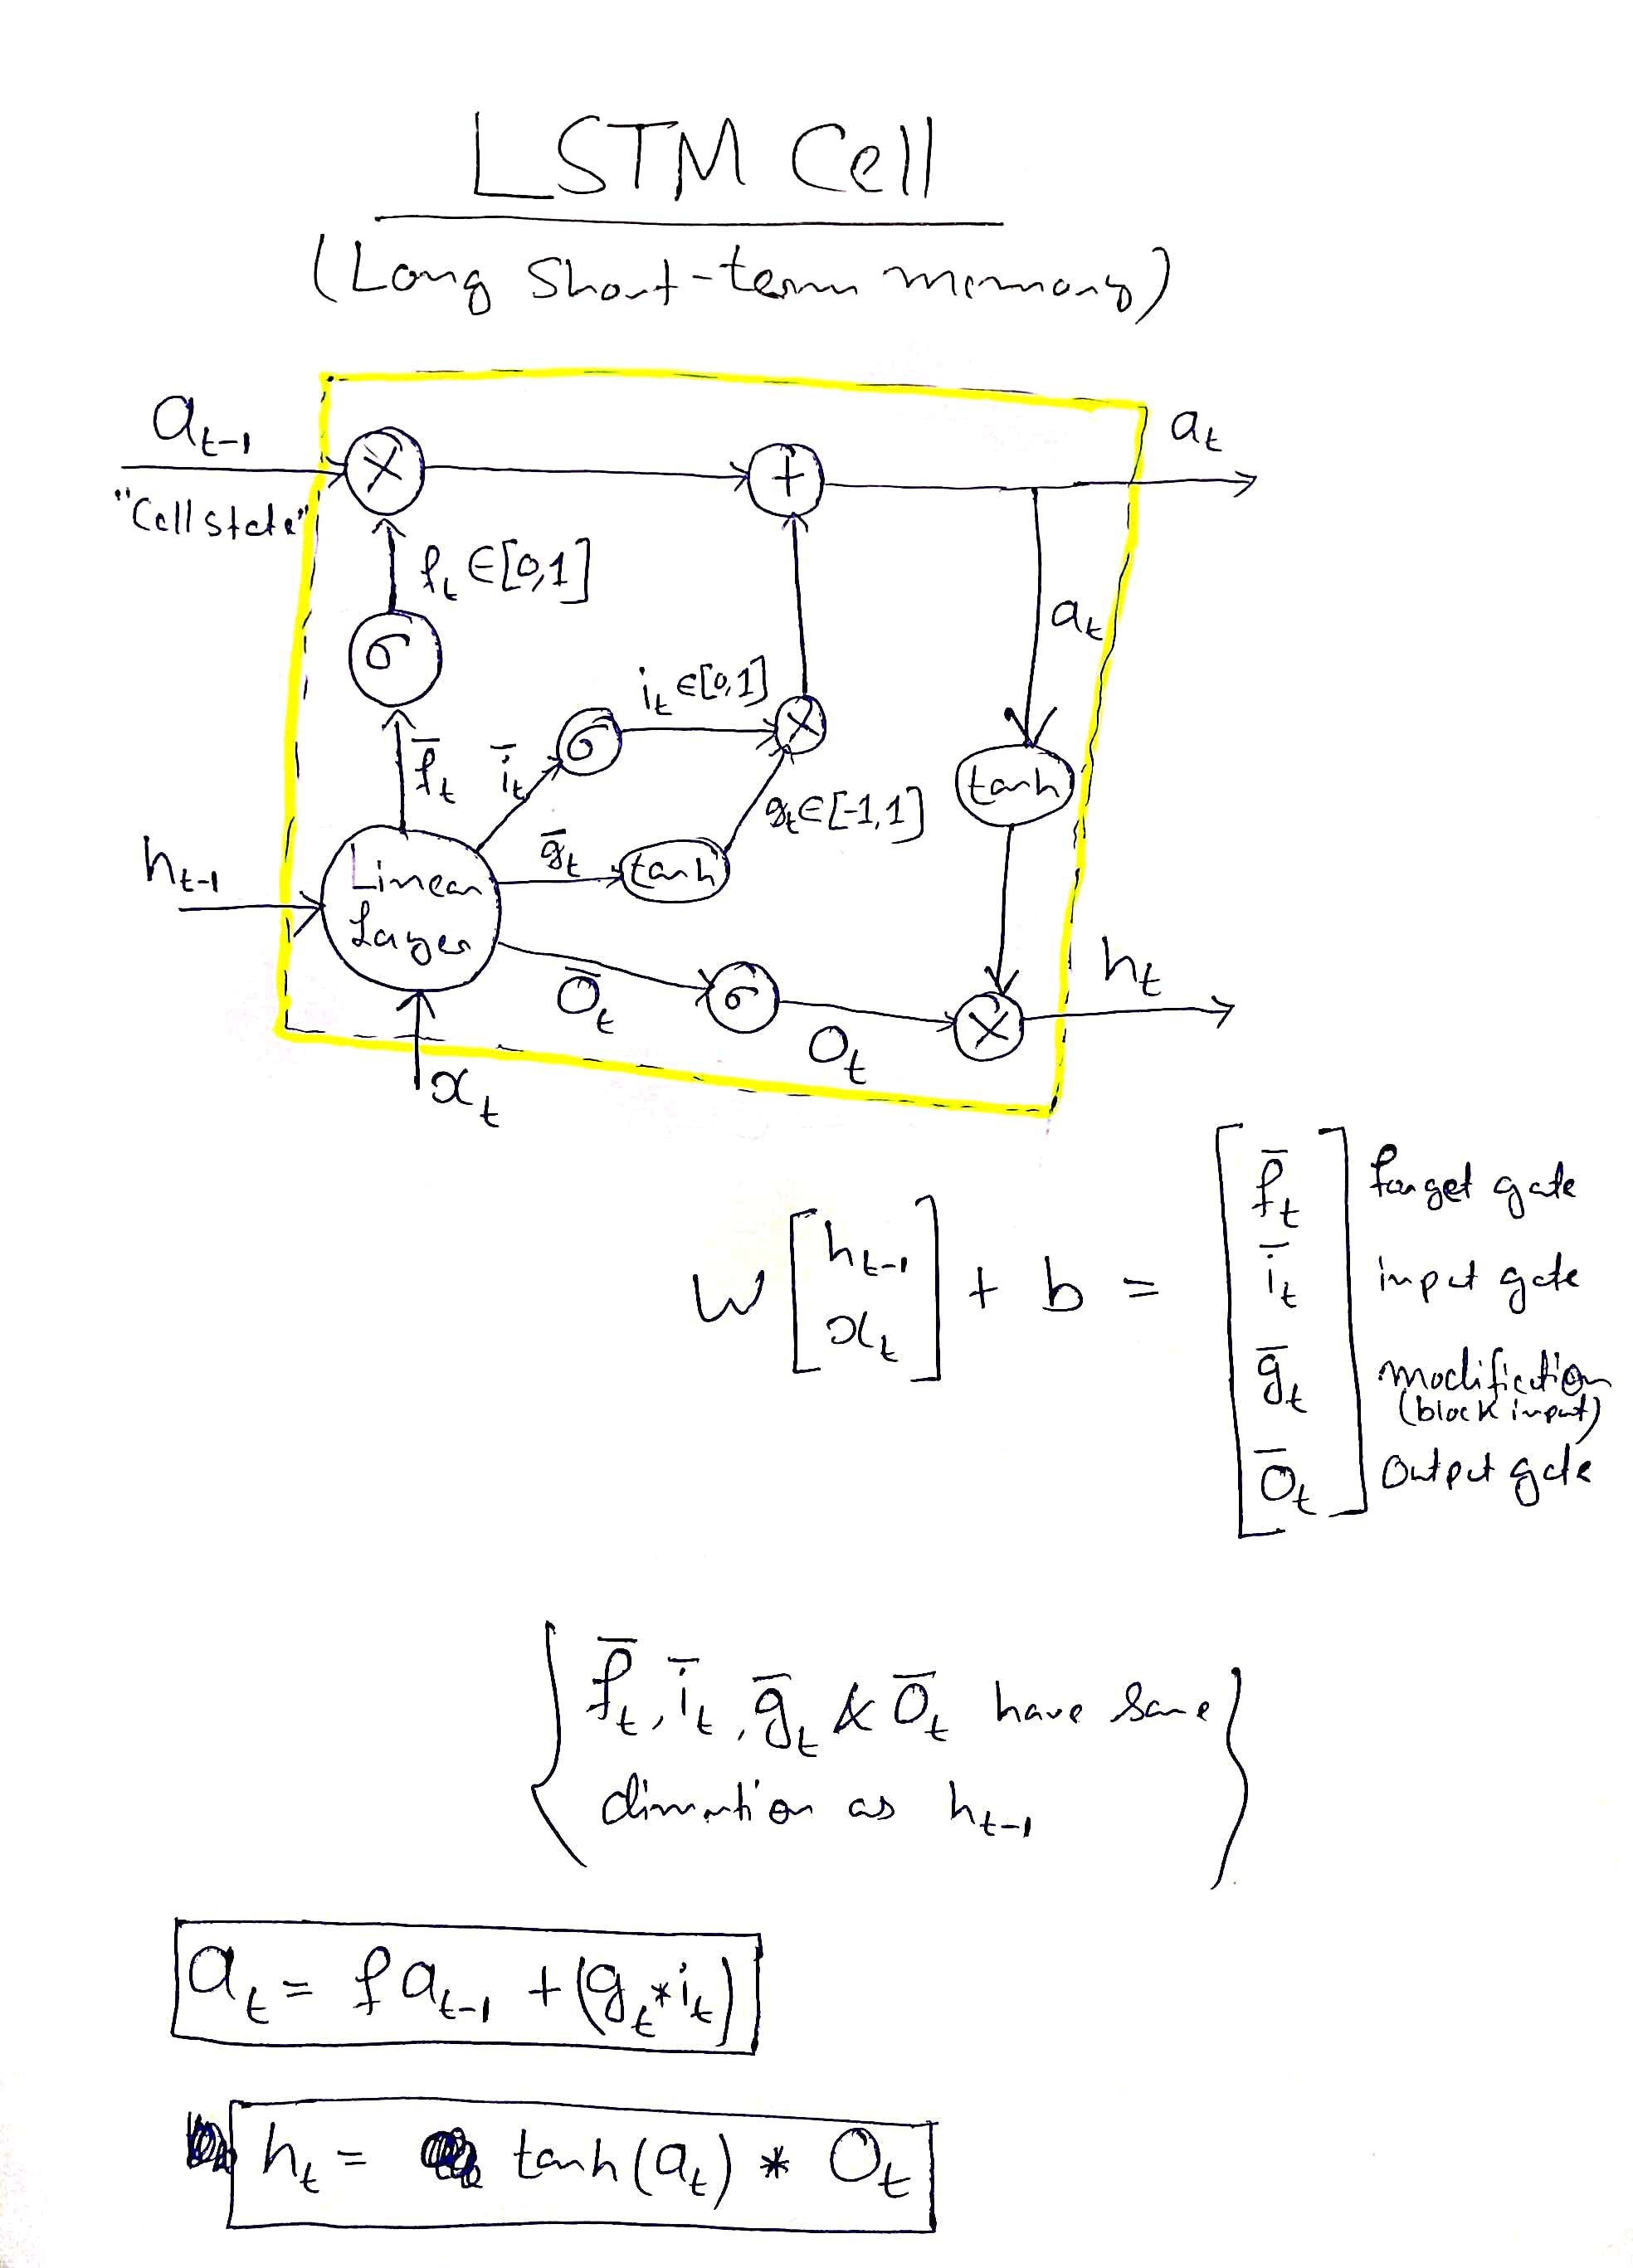 LSTM Cell
(Long Short-term memory)
a_{t-1}
a_t
"Cell state"
f_t ∈[0,1]
a_t
σ
i_t ∈[0,1]
σ
f̄_t
ī_t
tanh
g_t∈[-1,1]
h_{t-1}
Linear
Layer
ḡ_t
tanh
h_t
ō_t
σ
o_t
x_t
W [h_{t-1} x_t] + b = [f̄_t ī_t ḡ_t ō_t]
forget gate
input gate
modification
(block input)
Output gate
{ f̄_t, ī_t, ḡ_t & ō_t have same
dimention as h_{t-1} }
a_t = f a_{t-1} + (g_t * i_t)
h_t = tanh(a_t) * O_t